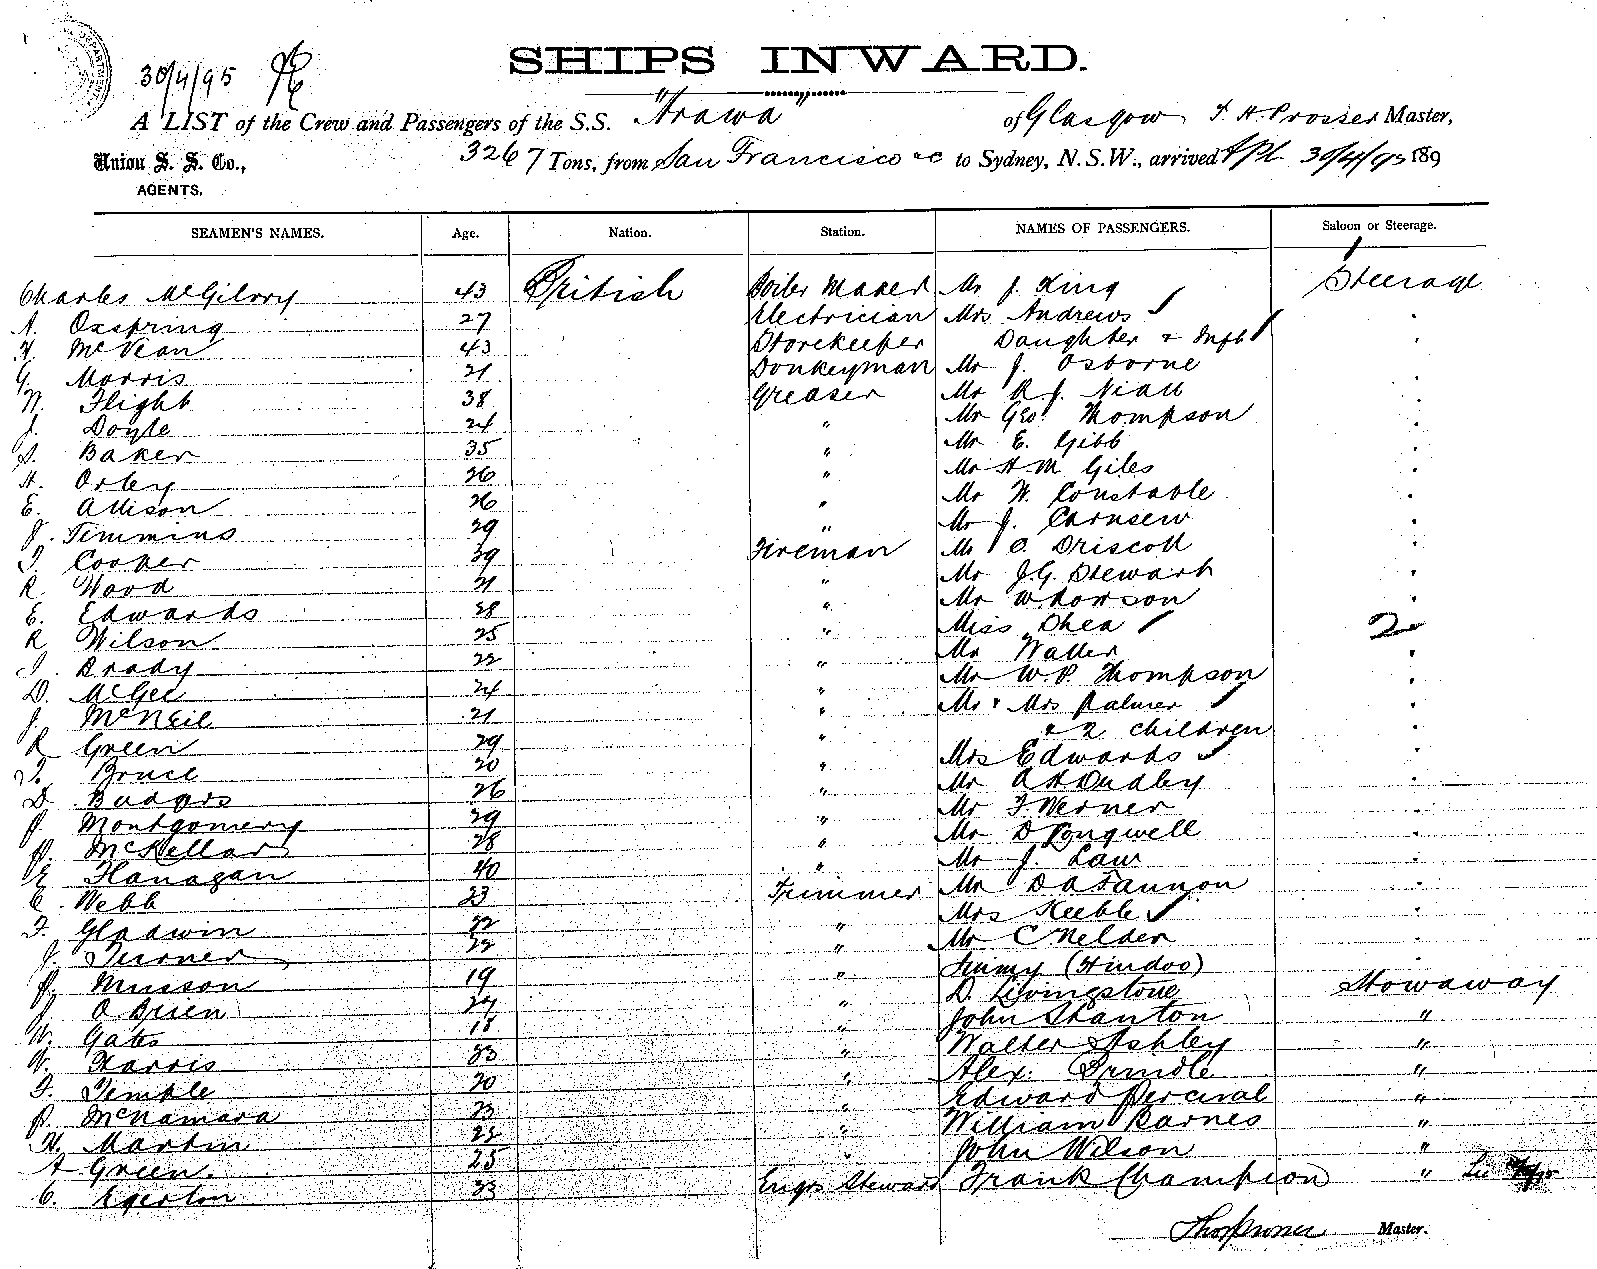 30/4/95
SHIPS INWARD.
A LIST of the Crew and Passengers of the S.S. "Arawa" of Glasgow, Prosser Master,
Union S. S. Co., 3267 Tons, from San Francisco &c to Sydney, N.S.W., arrived 30/4/95 189
AGENTS.
SEAMEN'S NAMES. Age. Nation. Station. NAMES OF PASSENGERS. Saloon or Steerage.
Charles McGilvry 43 British Boiler Maker Mr J. King Steerage
A. Oxspring 27 Electrician Mrs Andrews "
H. McVean 43 Storekeeper Daughter + Inft "
G. Morris 21 Donkeyman Mr J. Osborne "
W. Flight 38 Greaser Mr R. J. Niall "
J. Doyle 24 " Mr Geo. Thompson "
S. Baker 35 " Mr E. Gibb "
H. Orby 26 " Mr H M Giles "
E. Allison 26 " Mr W. Constable "
J. Timmins 29 " Mr J. Carnsew "
T. Cooper 39 Fireman Mr O. Driscoll "
R Wood 21 " Mr J.G. Stewart "
E. Edwards 28 " Mr W Lowson "
R Wilson 25 " Miss Shea 2
J. Brady 22 " Mr Walter "
D. McGee 24 " Mr W. P. Thompson "
J. McNeil 21 " Mr & Mrs Palmer "
R Green 29 " & 2 children "
T. Bruce 20 " Mrs Edwards "
D. Badgers 26 " Mr A H Dudley "
J. Montgomery 29 " Mr F. Werner "
P. McKellar 28 " Mr D Longwell "
E Flanagan 40 " Mr J. Law "
C. Webb 23 Trimmer Mr D A Fannon "
F. Gladwin 22 " Mrs Keeble "
J. Turner 22 " Mr C Nelder "
P. Musson 19 " (Hindoo)
J. O Brien 27 " D. Livingstone Stowaway
W. Gates 18 " John Stanton "
W. Harris 23 " Walter Ashley "
F. Temple 20 " Alex: Brindle "
P. McNamara 23 " Edward Percival "
H. Martin 22 " William Barnes "
A Green 25 " John Wilson "
C. Egerton 23 Engrs Steward Frank Champion "
Master.